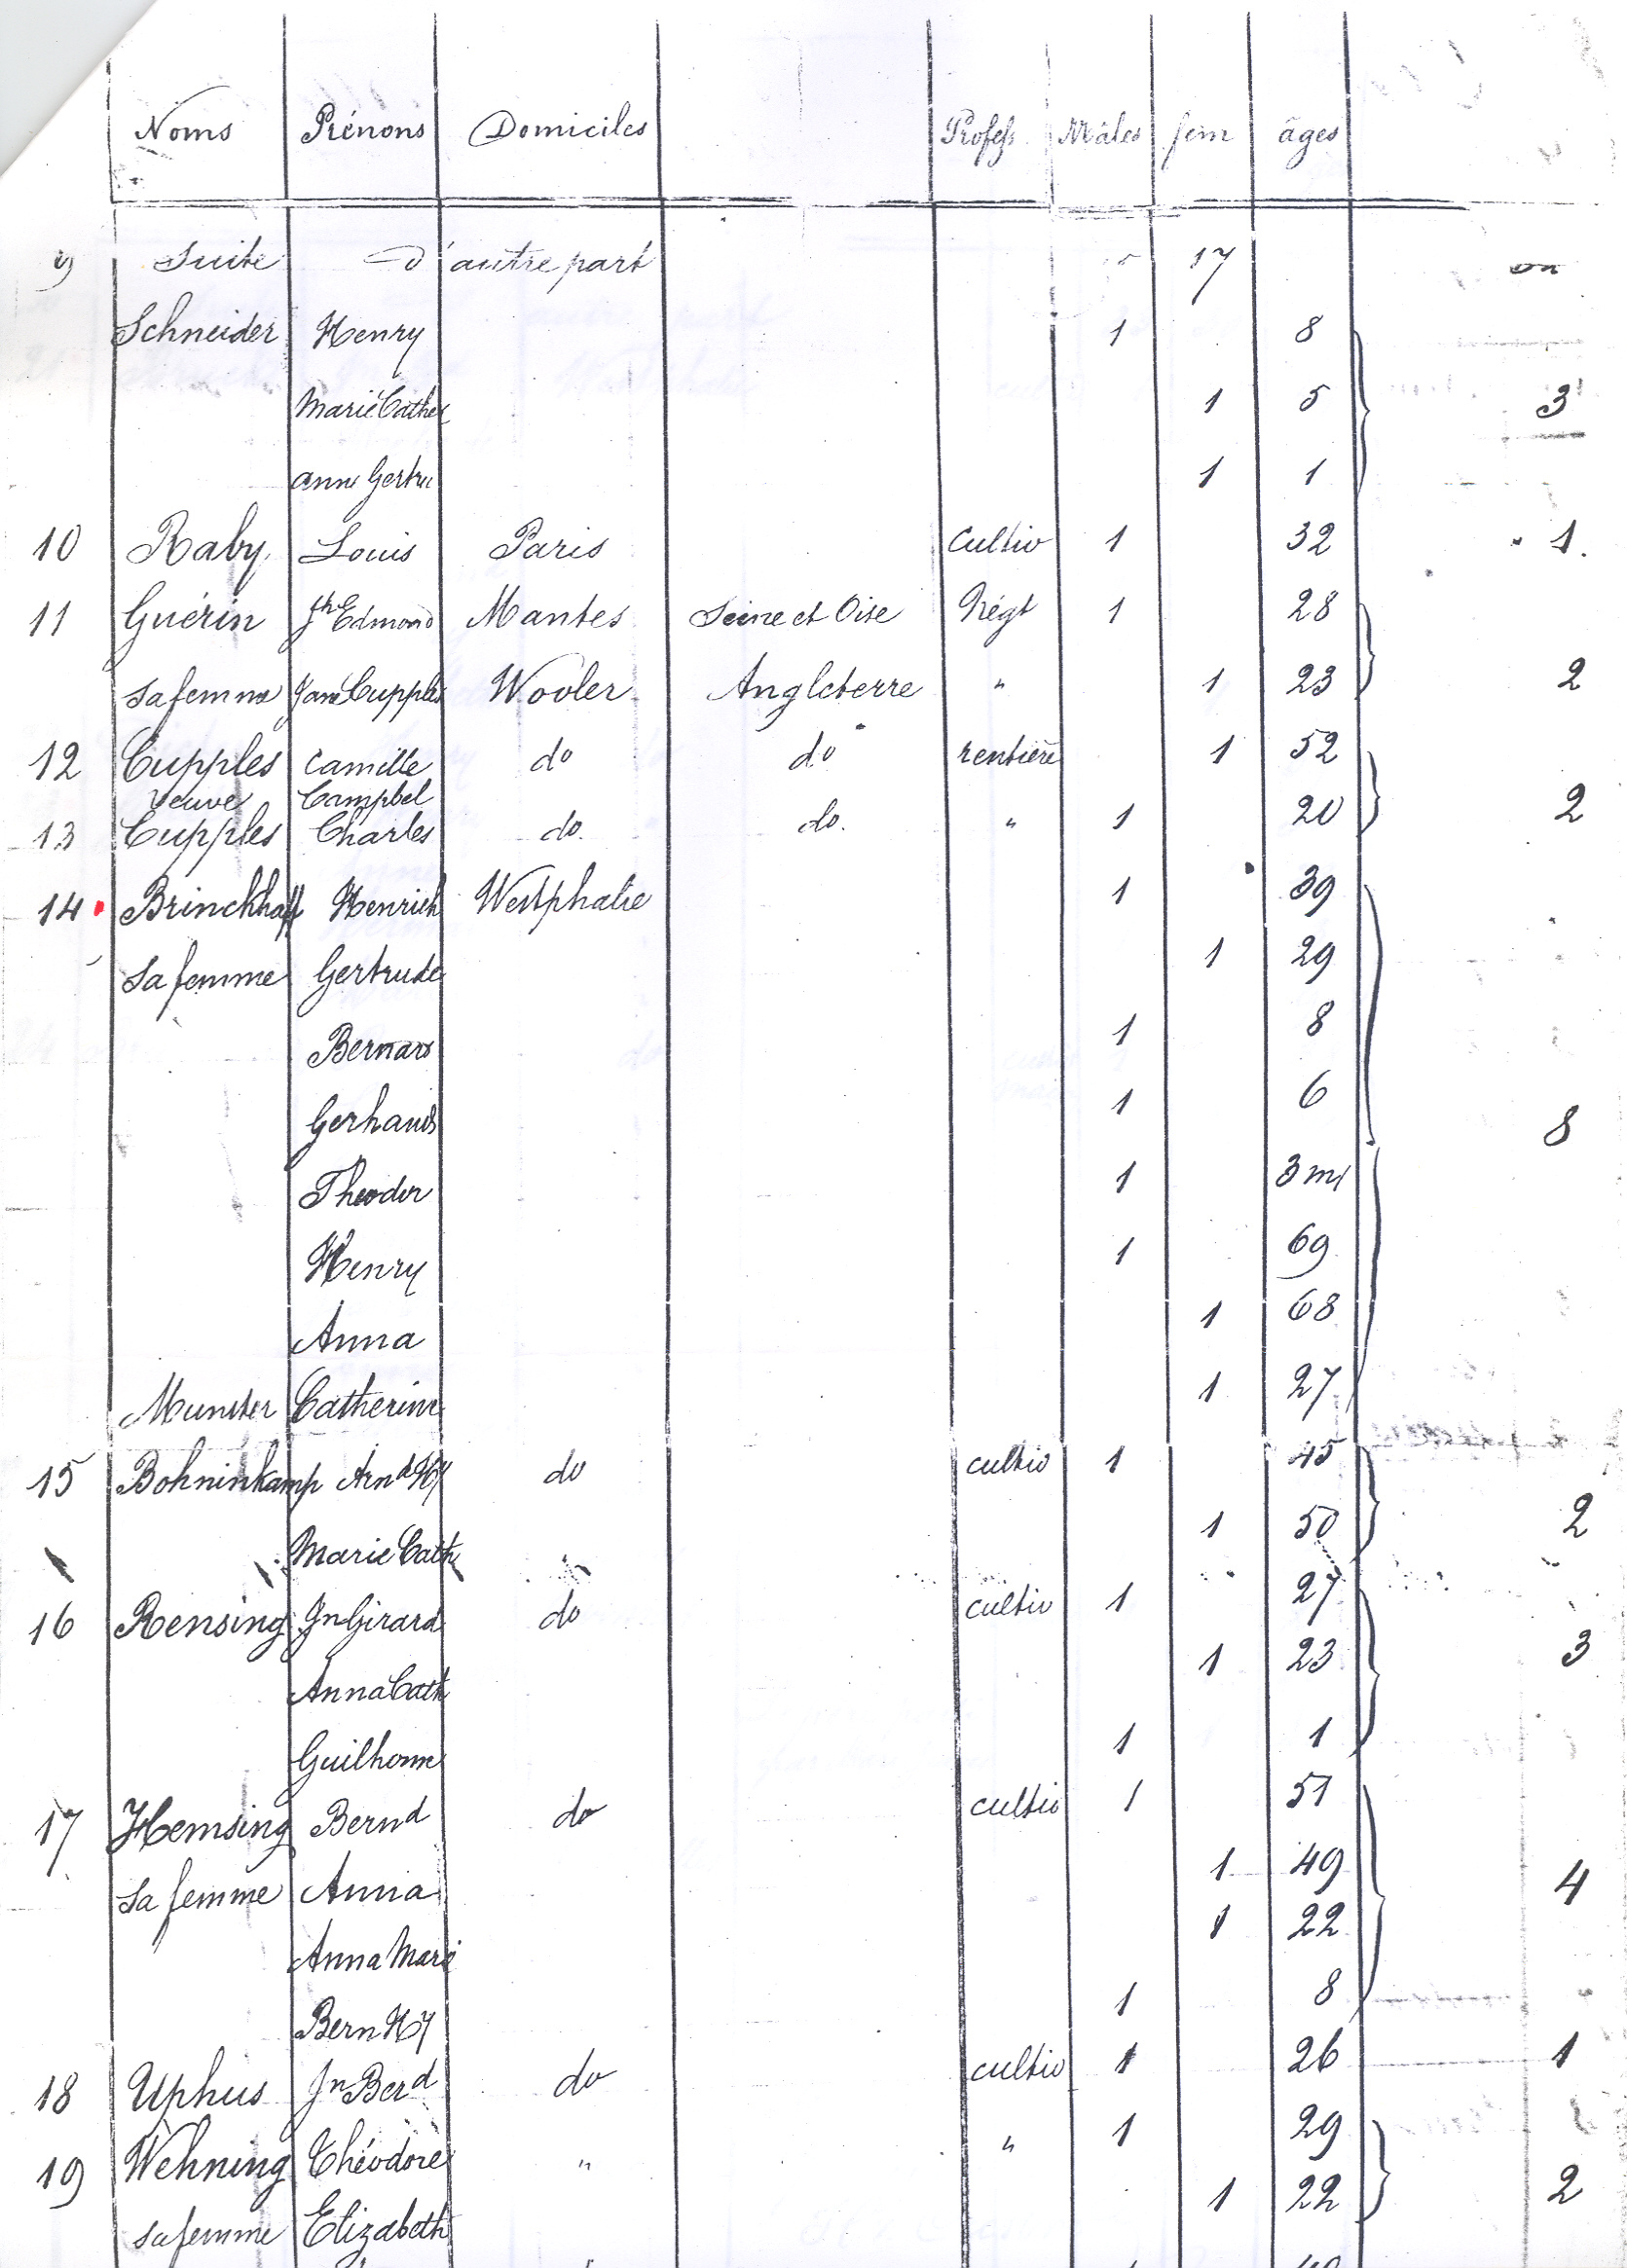 Noms Prénoms Domiciles Profess. Mâles fem âges
9 Suite d'autre part 17
Schneider Henry 1 8
Marie Cather 1 5 3
Anne Gertru 1 1
10 Raby Louis Paris Cultiv 1 32 1.
11 Guérin Jh Edmond Mantes Seine et Oise Négt 1 28
sa femme Jane Cupples Wooler Angleterre " 1 23 2
12 Cupples Camille do do rentière 1 52
veuve Campbel
13 Cupples Charles do. do. " 1 20 2
14 Brinckhaff Henrich Westphalie 1 39
Sa femme Gertrude 1 29
Bernard 1 8
Gerhard 1 6 8
Theodor 1 3 m
Henry 1 69
Anna 1 68
Munster Catherine 1 27
15 Bohninkamp Arnd Hy do cultiv 1 45
Marie Cath 1 50 2
16 Rensing Jn Girard do cultiv 1 27
Anna Cath 1 23 3
Guilhome 1 1
17 Hemsing Bernd do cultiv 1 51
Sa femme Anna 1 49 4
Anna Marie 1 22
Bern Hy 1 8
18 Uphus Jn Berd do cultiv 1 26 1
19 Wehning Théodore " " 1 29
sa femme Elizabeth 1 22 2